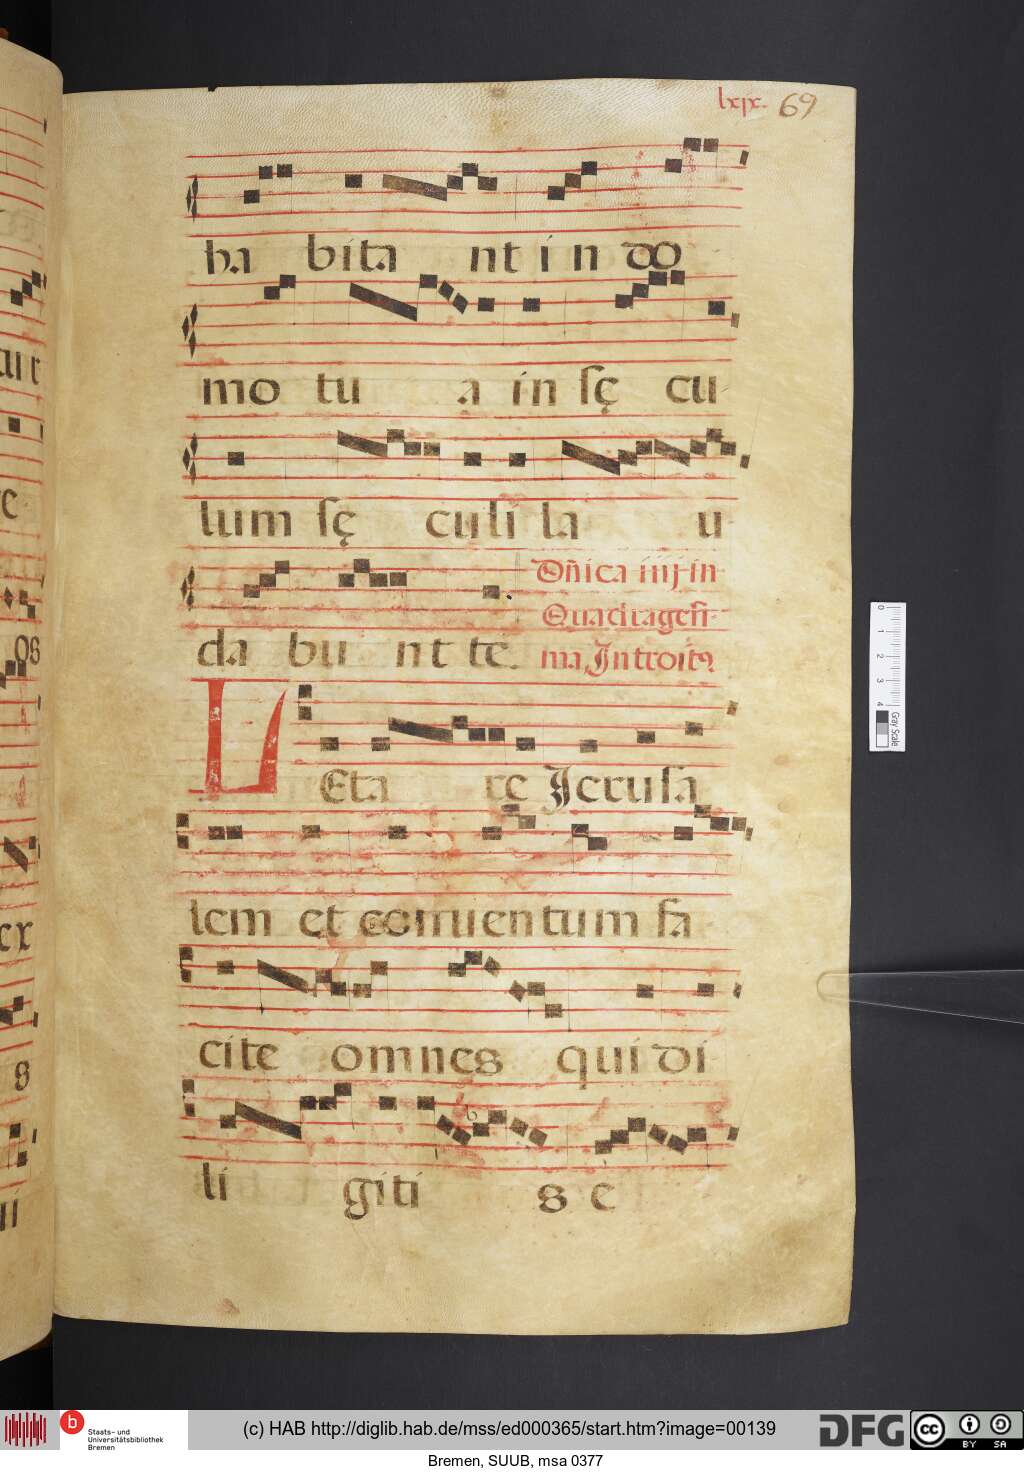 lxix. 69
ha bita nt in do
mo tu a in sę cu
lum sę culi la u
da bu nt te.
Dñica iiij in
Quadragesi
ma, Introit9
LEta re Jerusa
lem et conuentum fa
cite omnes qui di
li giti s e
0 1 2 3 4
Gray Scale
b Staats- und
Universitätsbibliothek
Bremen
(c) HAB http://diglib.hab.de/mss/ed000365/start.htm?image=00139
DFG
cc BY SA
Bremen, SUUB, msa 0377